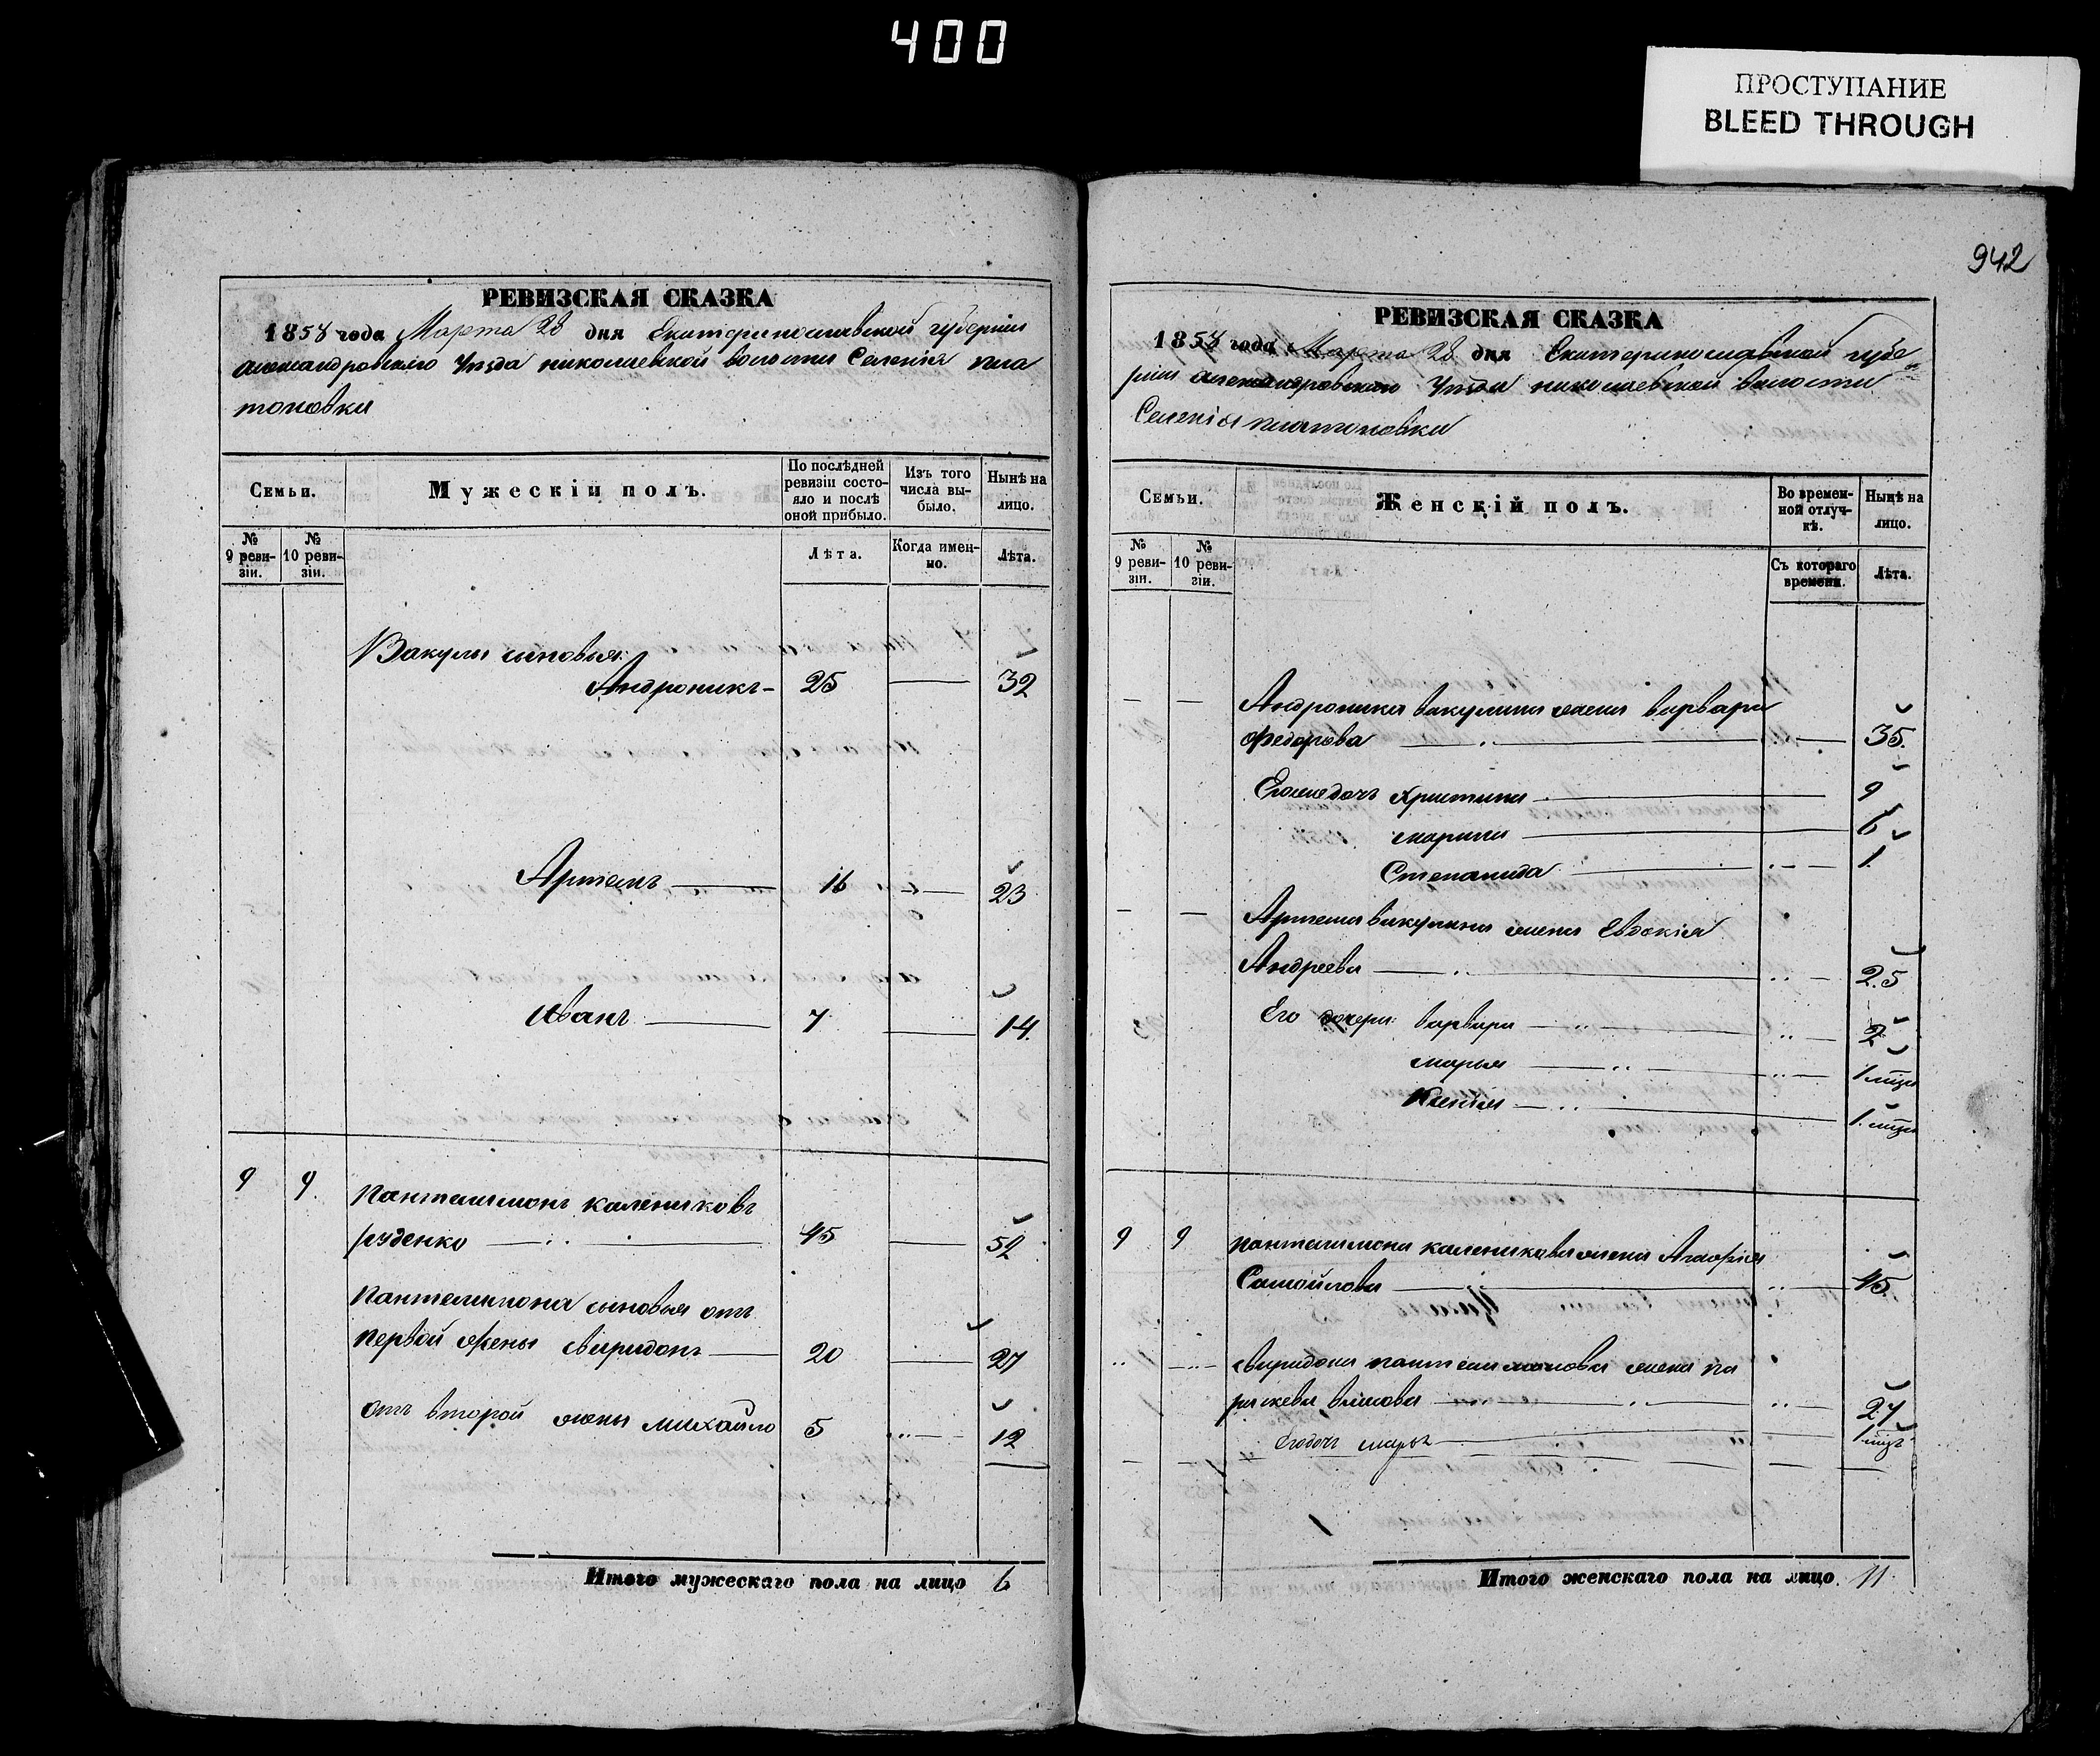 400
ПРОСТУПАНИЕ
BLEED THROUGH
942
РЕВИЗСКАЯ СКАЗКА
1858 года Марта 28 дня Екатеринославской губернии
александровского уѣзда николаевской волости Селенія пла
тоновки
Семьи.
Мужескій полъ.
По послѣдней ревизіи состояло и послѣ оной прибыло.
Изъ того числа выбыло.
Нынѣ на лицо.
№ 9 ревизіи.
№ 10 ревизіи.
Лѣта.
Когда именно.
Лѣта.
Вакулы сыновья:
Андроникъ 25 — 32
Артемъ — 16 — 23
Иванъ — 7 — 14.
9 9. пантелимонъ калениковъ
руденко — 45 — 52
пантелимона сыновья отъ
первой жены свиридонъ — 20 — 27
отъ второй жены михайло 5 — 12
Итого мужескаго пола на лицо 6
РЕВИЗСКАЯ СКАЗКА
1858 года Марта 28 дня Екатеринославской губе
рнии александровского уѣзда николаевской волости
Селенія платоновки
Семьи.
Женскій полъ.
Во временной отлучкѣ.
Нынѣ на лицо.
№ 9 ревизіи.
№ 10 ревизіи.
Съ котораго времени.
Лѣта.
— — Андроника вакулина жена варвара
федорова — 35.
Христина — 9
марина — 6
Степанида — 1.
— — Артема вакулина жена Евдокія
Андреева — 25
Его дочери варвара — 2
марья — 1 мѣц
Ксенія — 1. мѣц
9 9 пантелимона каленикова жена Агафія
Самойлова — 45.
свиридона пантелимонова жена па
раскева — 27
Егодочь марья — 1 мѣц
Итого женскаго пола на лицо. 11